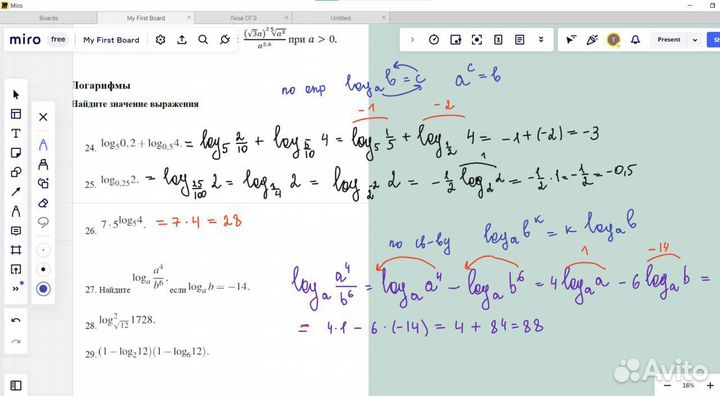 Miro
Boards
My First Board
Лиза ОГЭ
Untitled
miro free My First Board
Present
(√3a)²⁵√a³ / a^2,6 при a > 0.
Логарифмы
Найдите значение выражения
по опр logₐb = c a^c = b
-1 -2
24. log₅0,2 + log₀,₅4. = log₅ 2/10 + log_5/10 4 = log₅ 1/5 + log_1/2 4 = -1 + (-2) = -3
1
25. log₀,₂₅2. = log_25/100 2 = log_1/4 2 = log_2⁻² 2 = -1/2 log₂2 = -1/2 · 1 = -1/2 = -0,5
26. 7 · 5^log₅4. = 7 · 4 = 28
по св-ву logₐb^k = k logₐb
1 -14
27. Найдите logₐ a⁴/b⁶, если logₐb = −14.
logₐ a⁴/b⁶ = logₐa⁴ - logₐb⁶ = 4logₐa - 6logₐb =
= 4·1 - 6·(-14) = 4 + 84 = 88
28. log²_√12 1728.
29. (1 − log₂12)(1 − log₆12).
16%
Avito